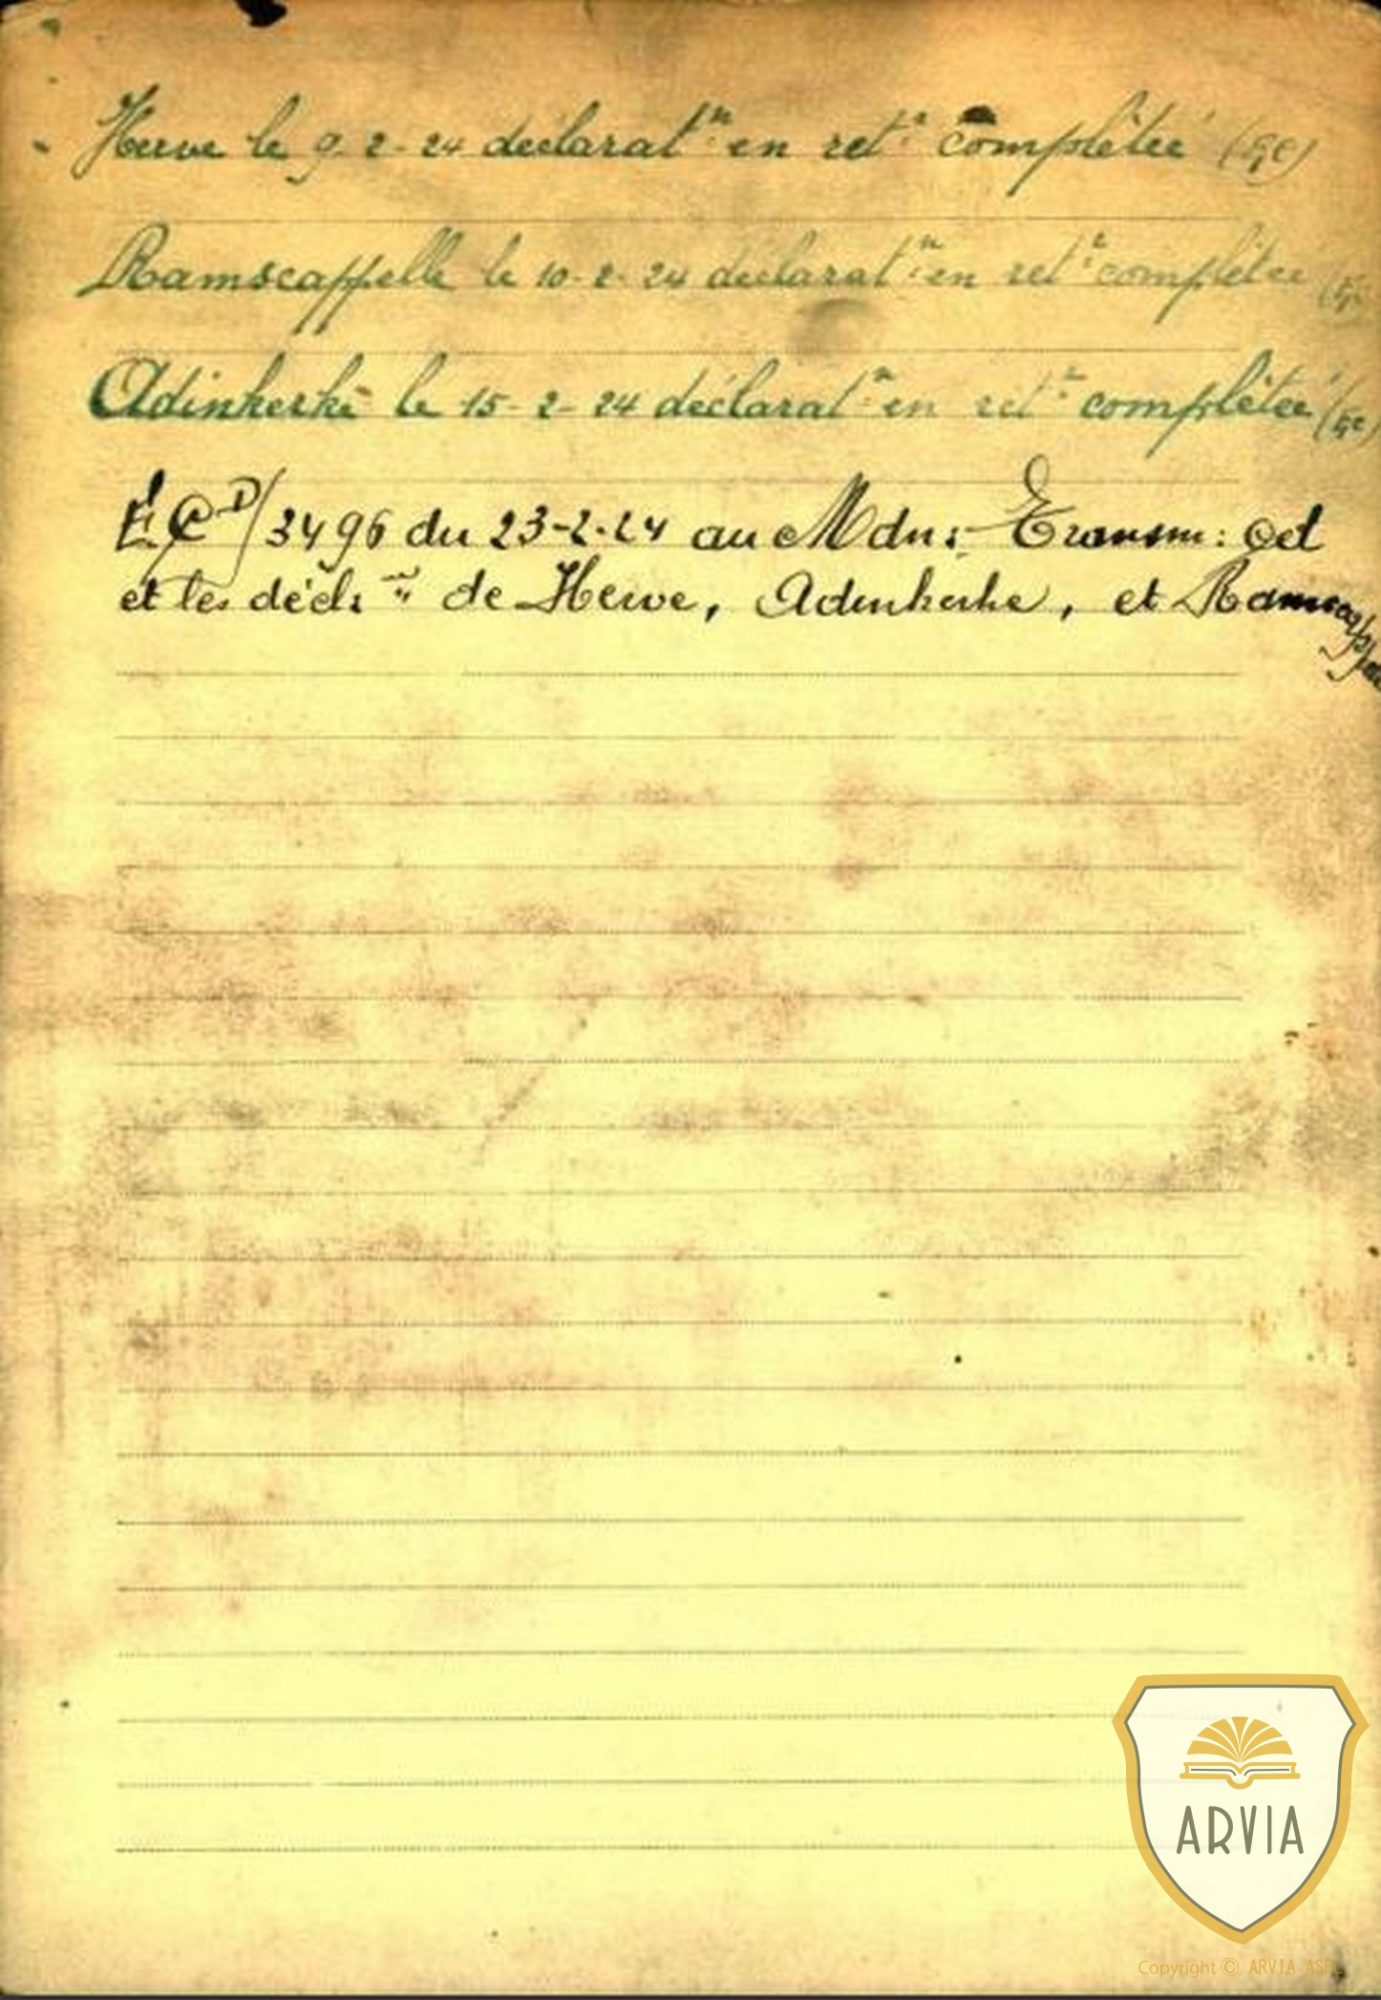 Herve le 9-2-24 déclarat.n en ret.r complétée (Ec)
Ramscappelle le 10-2-24 déclarat.n en ret.r complétée
Adinkerke le 15-2-24 déclarat.n en ret.r complétée (Ec)
D/3496 du 23-2-24 au Mdn: Transm:
et les décl: de Herve, Adinkerke, et Ramscappelle
ARVIA
Copyright © ARVIA ASBL